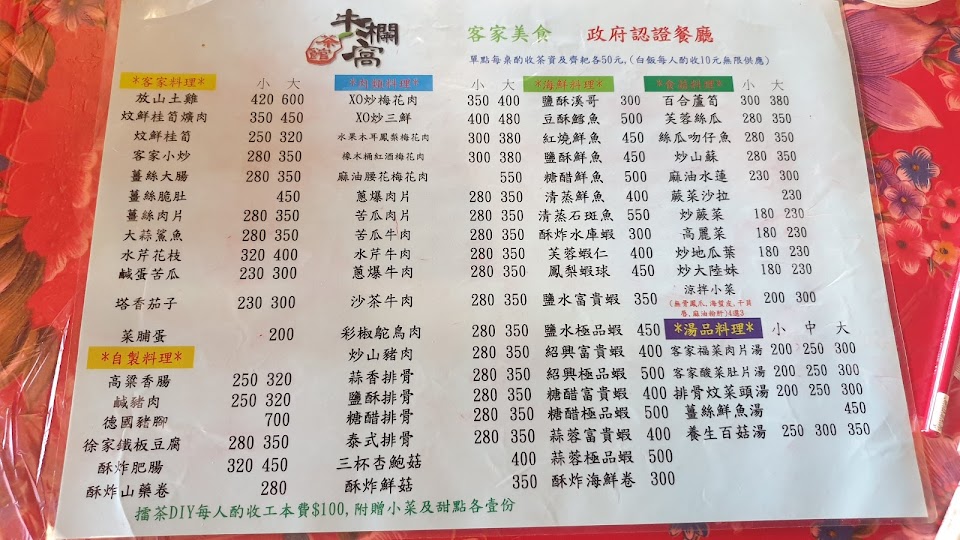 牛欄窩
茶館
客家美食 政府認證餐廳
單點每桌酌收茶資及薺粑各50元,(白飯每人酌收10元無限供應)
*客家料理* 小 大
放山土雞 420 600
炆鮮桂筍爌肉 350 450
炆鮮桂筍 250 320
客家小炒 280 350
薑絲大腸 280 350
薑絲脆肚 450
薑絲肉片 280 350
大蒜鯊魚 280 350
水芹花枝 320 400
鹹蛋苦瓜 230 300
塔香茄子 230 300
菜脯蛋 200
*自製料理*
高粱香腸 250 320
鹹豬肉 250 320
德國豬腳 700
徐家鐵板豆腐 280 350
酥炸肥腸 320 450
酥炸山藥卷 280
料理* 小 大
XO炒梅花肉 350 400
XO炒三鮮 400 480
水果木耳鳳梨梅花肉 300 380
橡木桶紅酒梅花肉 300 380
麻油腰花梅花肉 550
蔥爆肉片 280 350
苦瓜肉片 280 350
苦瓜牛肉 280 350
水芹牛肉 280 350
蔥爆牛肉 280 350
沙茶牛肉 280 350
彩椒鴕鳥肉 280 350
炒山豬肉 280 350
蒜香排骨 280 350
鹽酥排骨 280 350
糖醋排骨 280 350
泰式排骨 280 350
三杯杏鮑菇 400
酥炸鮮菇 350
*海鮮料理*
鹽酥溪哥 300
豆酥鱈魚 500
紅燒鮮魚 450
鹽酥鮮魚 450
糖醋鮮魚 500
清蒸鮮魚 400
清蒸石斑魚 550
酥炸水庫蝦 300
芙蓉蝦仁 400
鳳梨蝦球 450
鹽水富貴蝦 350
鹽水極品蝦 450
紹興富貴蝦 400
紹興極品蝦 500
糖醋富貴蝦 400
糖醋極品蝦 500
蒜蓉富貴蝦 400
蒜蓉極品蝦 500
酥炸海鮮卷 300
料理* 小 大
百合蘆筍 300 380
芙蓉絲瓜 280 350
絲瓜吻仔魚 280 350
炒山蘇 280 350
麻油水蓮 230 300
蕨菜沙拉 230
炒蕨菜 180 230
高麗菜 180 230
炒地瓜葉 180 230
炒大陸妹 180 230
涼拌小菜 200 300
*湯品料理* 小 中 大
客家福菜肉片湯 200 250 300
客家酸菜肚片湯 200 250 300
排骨炆菜頭湯 200 250 300
薑絲鮮魚湯 450
養生百菇湯 250 300 350
擂茶DIY每人酌收工本費$100,附贈小菜及甜點各壹份